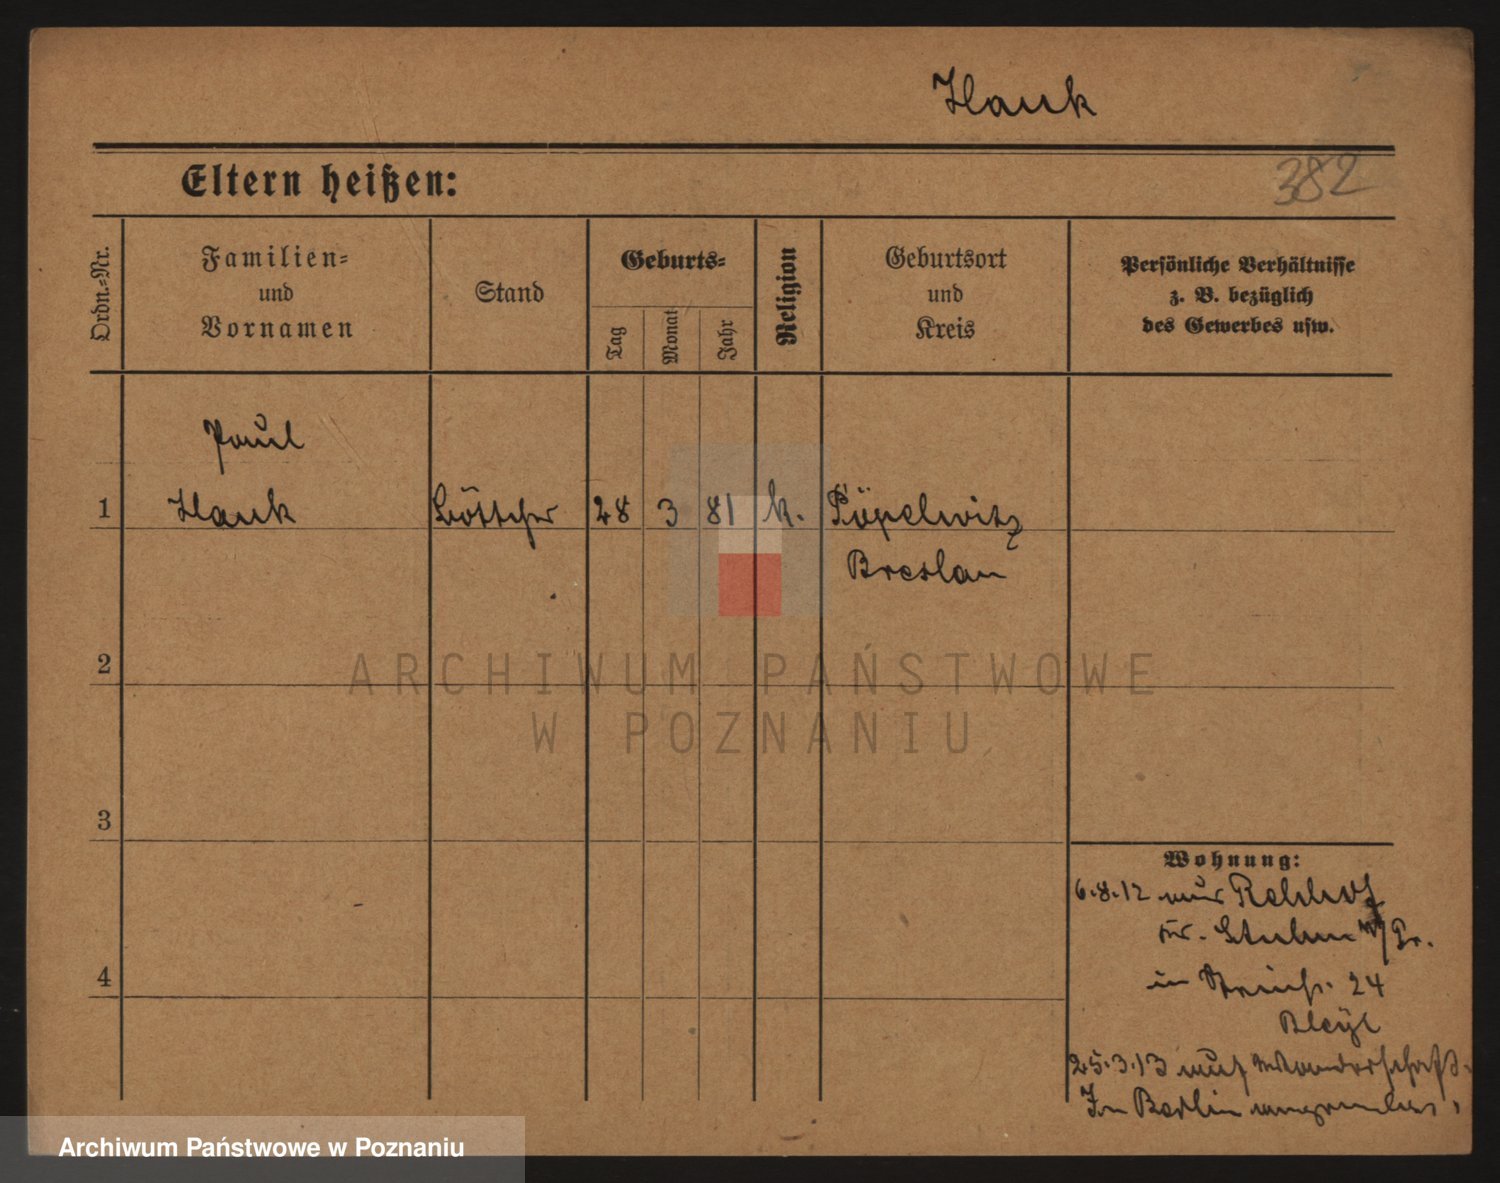 Hauk
Eltern heißen:
382
Ordn.=Nr.
Familien=
und
Vornamen
Stand
Geburts=
Tag
Monat
Jahr
Religion
Geburtsort
und
Kreis
Persönliche Verhältnisse
z. B. bezüglich
des Gewerbes usw.
Paul
1 Hauk Böttcher 28 3 81 k. Pöpelwitz
Breslau
2
3
4
Wohnung:
6.8.12 aus Rehhof
Kr. Stuhm W/Pr.
in 24
Bleyl
25.3.13 auf Wanderschaft.
In Berlin
ARCHIWUM PAŃSTWOWE
W POZNANIU
Archiwum Państwowe w Poznaniu